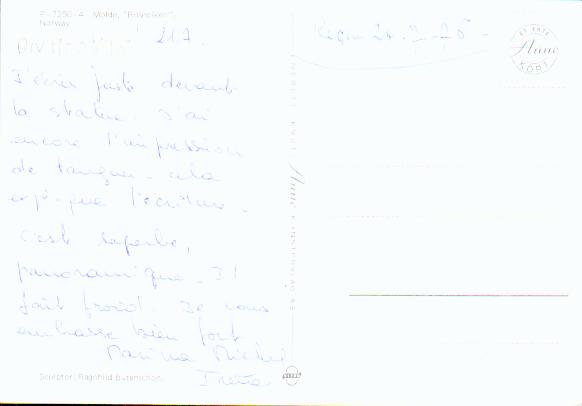 F-7250-4 Molde, "Rosepiken",
Norway
21.7.
Reçu 24.7.76 -
ET EKTE
Aune
KORT
J'écris juste devant
la statue. J'ai
encore l'impression
de tanguer - cela
explique l'écriture -
c'est superbe,
panoramique. Il
fait froid. Je vous
embrasse bien fort
Marina Michel
Irena
Sculptor: Ragnhild Butenschøn.